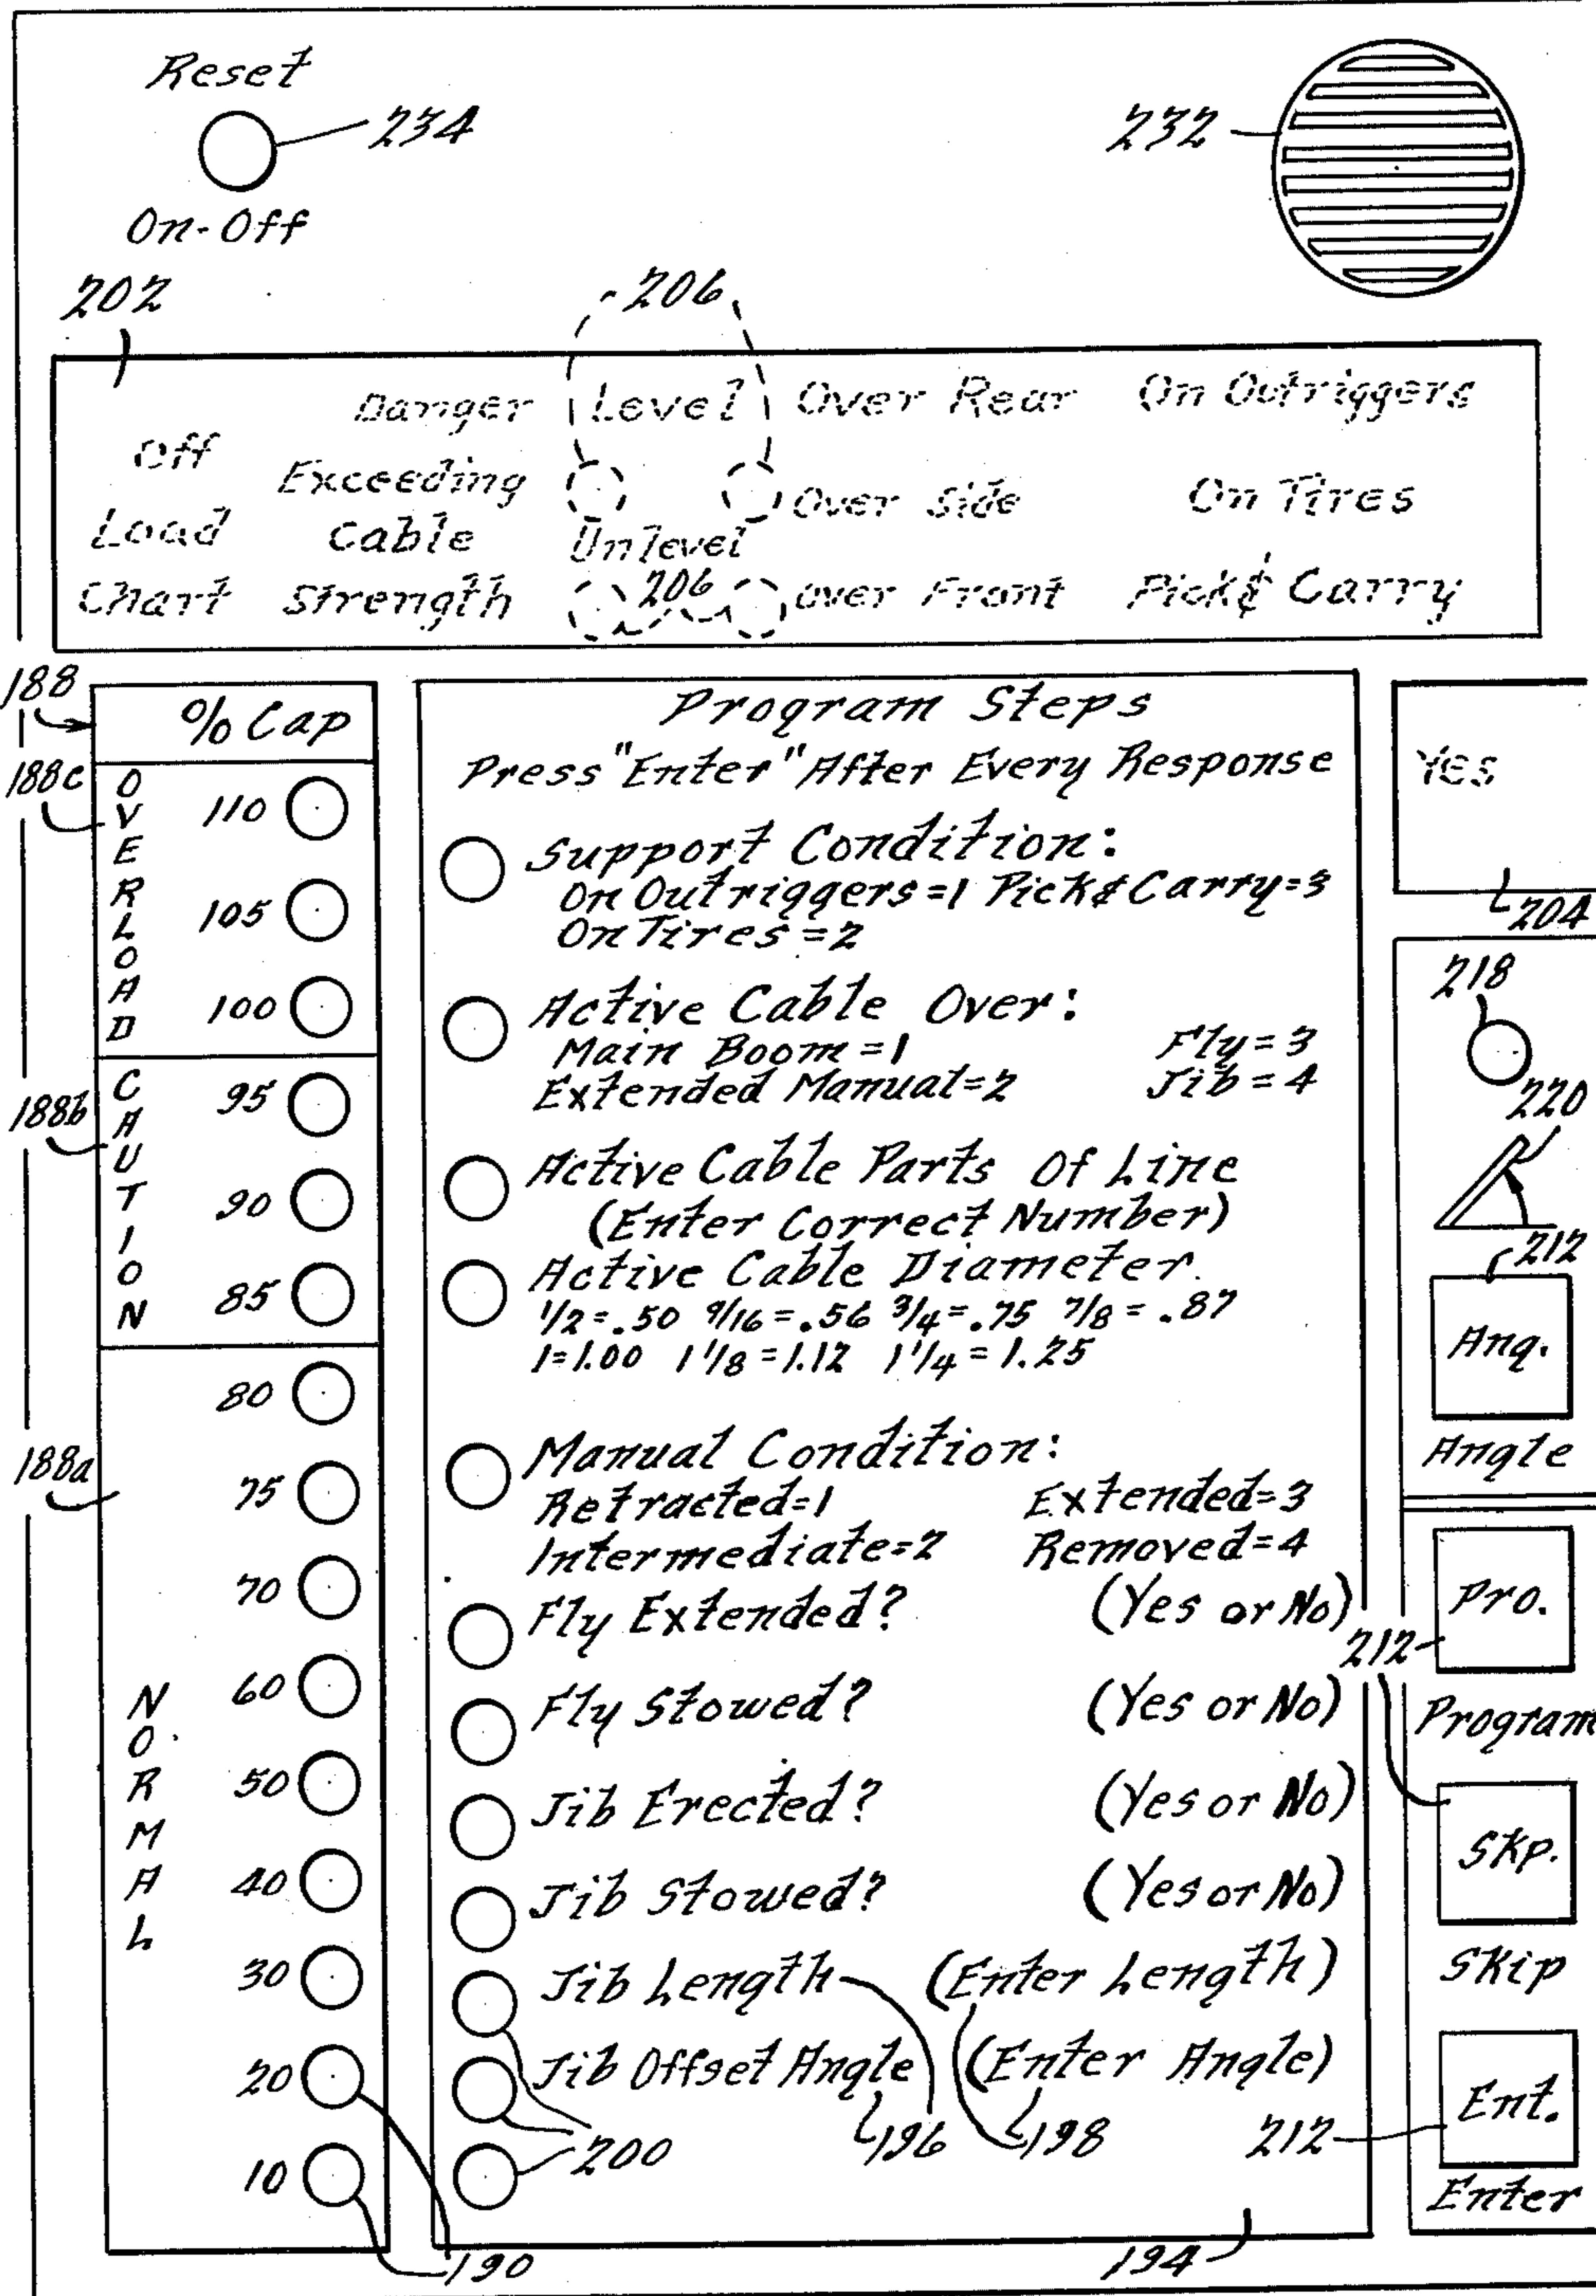 Reset
234
232
On-Off
202
206
Danger Level Over Rear On Outriggers
Off Exceeding Over Side On Tires
Load Cable Unlevel
Chart Strength 206 Over Front Pick & Carry
188
% Cap
188c
OVERLOAD
110
105
100
188b
CAUTION
95
90
85
188a
NORMAL
80
75
70
60
50
40
30
20
10
190
Program Steps
Press "Enter" After Every Response
Support Condition:
On Outriggers=1 Pick & Carry=3
On Tires=2
Active Cable Over:
Main Boom=1 Fly=3
Extended Manual=2 Jib=4
Active Cable Parts Of Line
(Enter Correct Number)
Active Cable Diameter.
1/2=.50 9/16=.56 3/4=.75 7/8=.87
1=1.00 1 1/8=1.12 1 1/4=1.25
Manual Condition:
Retracted=1 Extended=3
Intermediate=2 Removed=4
Fly Extended? (Yes or No)
Fly Stowed? (Yes or No)
Jib Erected? (Yes or No)
Jib Stowed? (Yes or No)
Jib Length (Enter Length)
Jib Offset Angle (Enter Angle)
200
196
198
194
Yes
204
218
220
212
Ang.
Angle
Pro.
212
Program
Skp.
Skip
212
Ent.
Enter